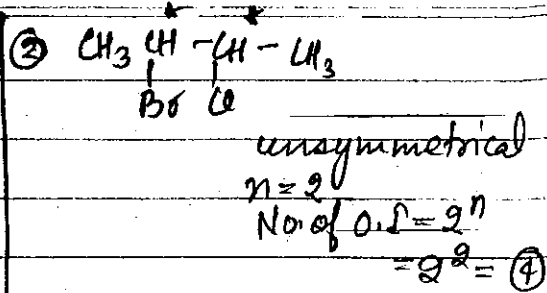 ② CH₃ CH - CH - CH₃
Br Cl
unsymmetrical
n = 2
No. of O.I = 2ⁿ
= 2² = ④